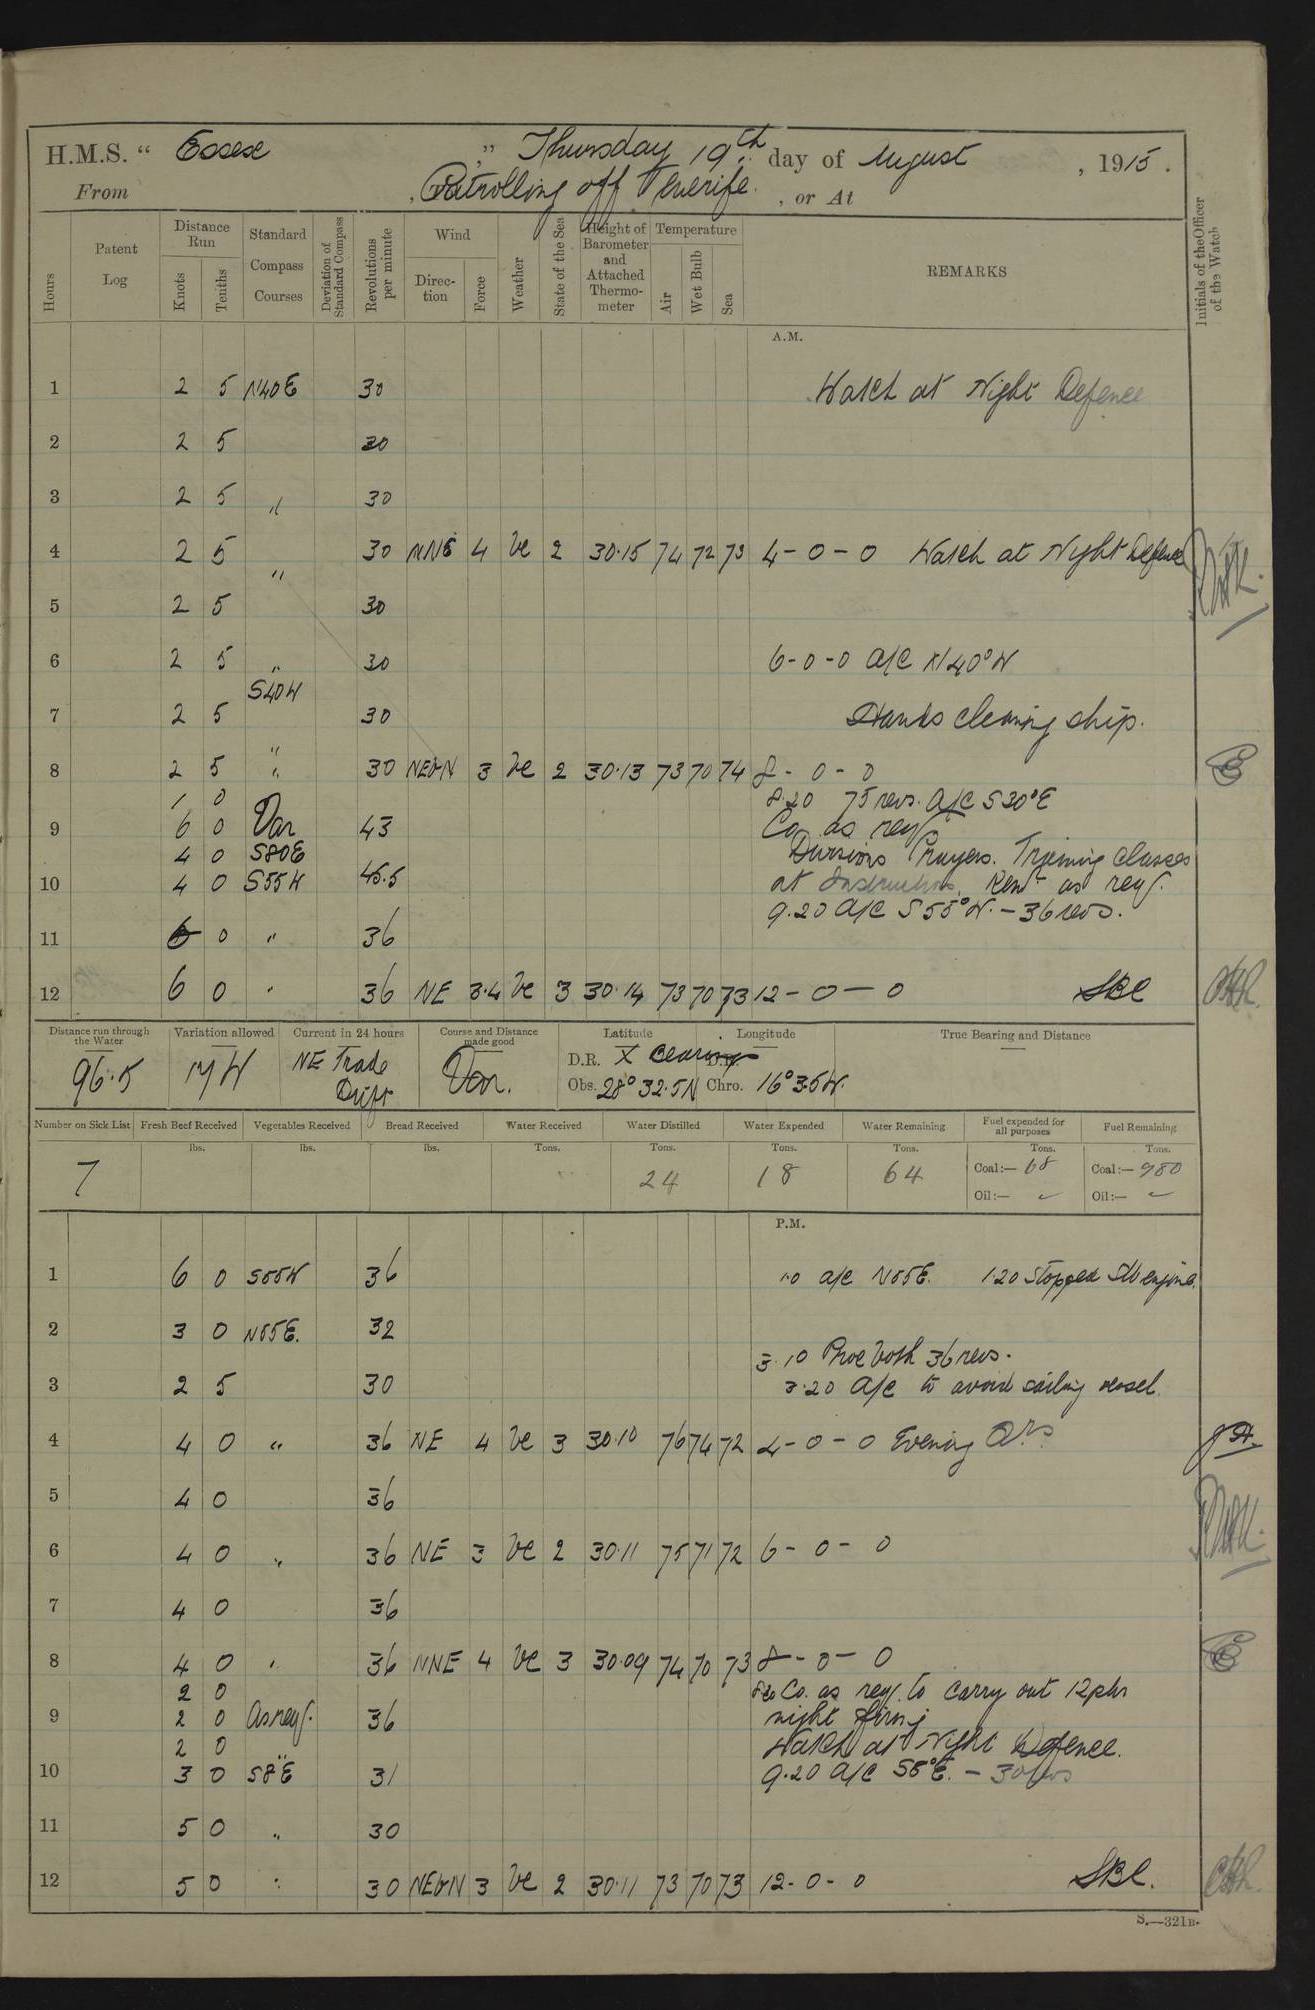 H.M.S. “ Essex ,” Thursday 19th day of August , 1915 .
From , Patrolling off Tenerife. , or At
Hours
Patent Log
Distance Run
Knots
Tenths
Standard Compass Courses
Deviation of Standard Compass
Revolutions per minute
Wind
Direc-tion
Force
Weather
State of the Sea
Height of Barometer and Attached Thermo-meter
Temperature
Air
Wet Bulb
Sea
REMARKS
Initials of the Officer of the Watch
A.M.
1 2 5 N40E 30 Watch at Night Defence
2 2 5 30
3 2 5 " 30
4 2 5 " 30 NNE 4 bc 2 30.15 74 72 73 4 - 0 - 0 Watch at Night Defence
5 2 5 30
6 2 5 " 30 6 - 0 - 0 A/C 40°W
S40W
7 2 5 " 30 Hands cleaning ship.
8 2 5 " 30 NEbN 3 bc 2 30.13 73 70 74 8 - 0 - 0
1 0 8.20 75 revs. A/C S30°E
9 6 0 Var 43 Co. as req.
4 0 S80E Divisions Prayers. Training Classes
10 4 0 S55W 45.5 at Instructions. as req.
9.20 A/C S55°W. - 36 revs.
11 6 0 " 36
12 6 0 " 36 NE 3.4 bc 3 30.14 73 70 73 12 - 0 - 0
Distance run through the Water
Variation allowed
Current in 24 hours
Course and Distance made good
Latitude
Longitude
True Bearing and Distance
96.5 17W NE Trade Drift Var.
D.R. X Bearings D.R.
Obs. 28° 32.5N Chro. 16° 35W.
Number on Sick List
Fresh Beef Received
Vegetables Received
Bread Received
Water Received
Water Distilled
Water Expended
Water Remaining
Fuel expended for all purposes
Fuel Remaining
lbs. lbs. lbs. Tons. Tons. Tons. Tons. Tons. Tons.
7 24 18 64 Coal:— 68 Coal:— 980
Oil:— Oil:—
P.M.
1 6 0 S55W 36 1.0 a/c N55E. 1.20 Stopped Stbd engine.
2 3 0 N55E. 32
3.10 Proc both 36 revs.
3 2 5 30 3.20 A/C to avoid sailing vessel.
4 4 0 " 36 NE 4 bc 3 30.10 76 74 72 4 - 0 - 0 Evening Qrs
5 4 0 36
6 4 0 " 36 NE 3 bc 2 30.11 75 71 72 6 - 0 - 0
7 4 0 36
8 4 0 " 36 NNE 4 bc 3 30.09 74 70 73 8 - 0 - 0
2 0 Co. as req. to carry out 12pdr
9 2 0 As req. 36 night firing
2 0 Watch at Night Defence.
10 3 0 S8E 31 9.20 A/C E. - 30 revs
11 5 0 " 30
12 5 0 " 30 NEbN 3 bc 2 30.11 73 70 73 12 - 0 - 0
S.—321B.